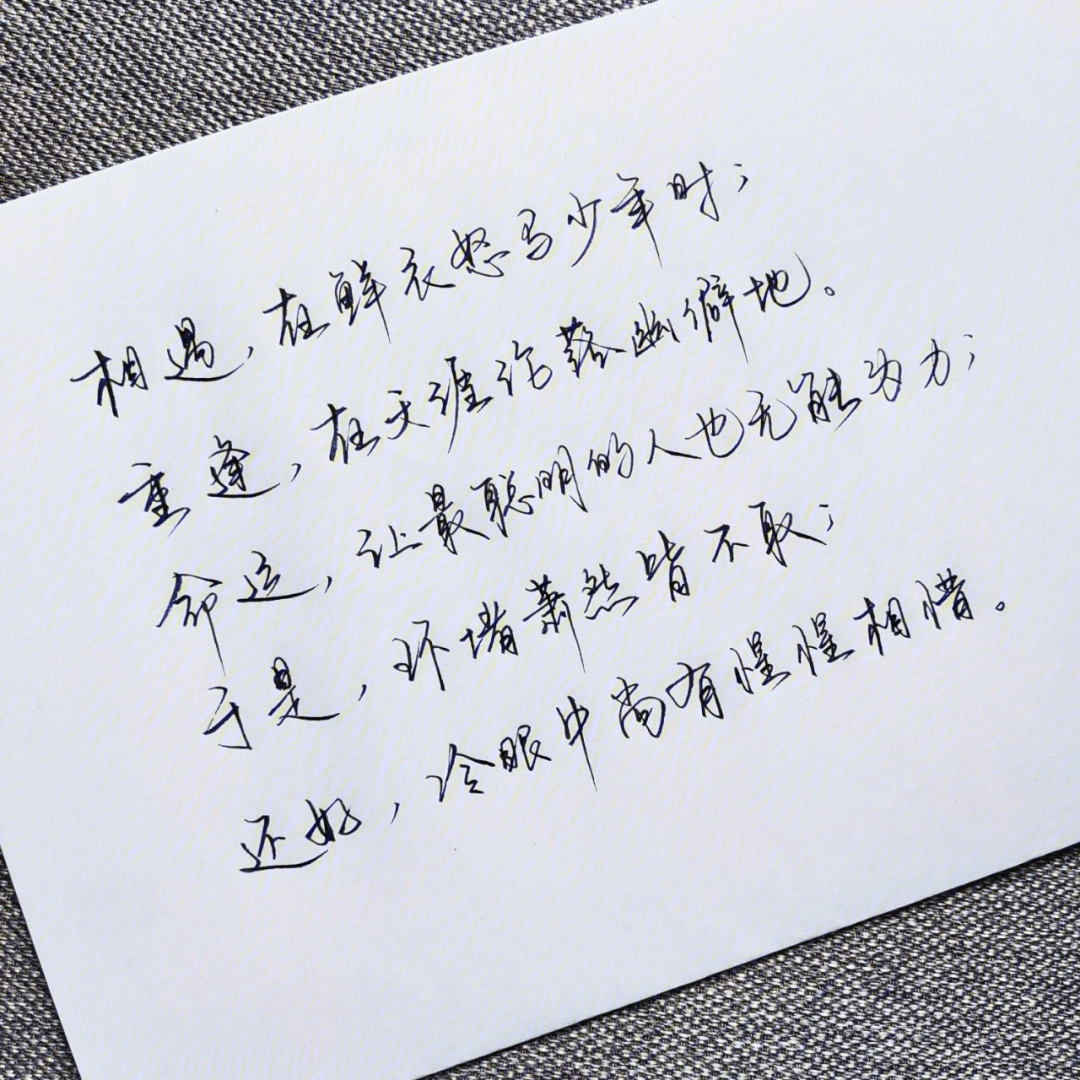 相遇，在鲜衣怒马少年时；
重逢，在天涯沦落幽僻地。
命运，让最聪明的人也无能为力；
于是，环堵萧然皆不取；
还好，冷眼中尚有惺惺相惜。